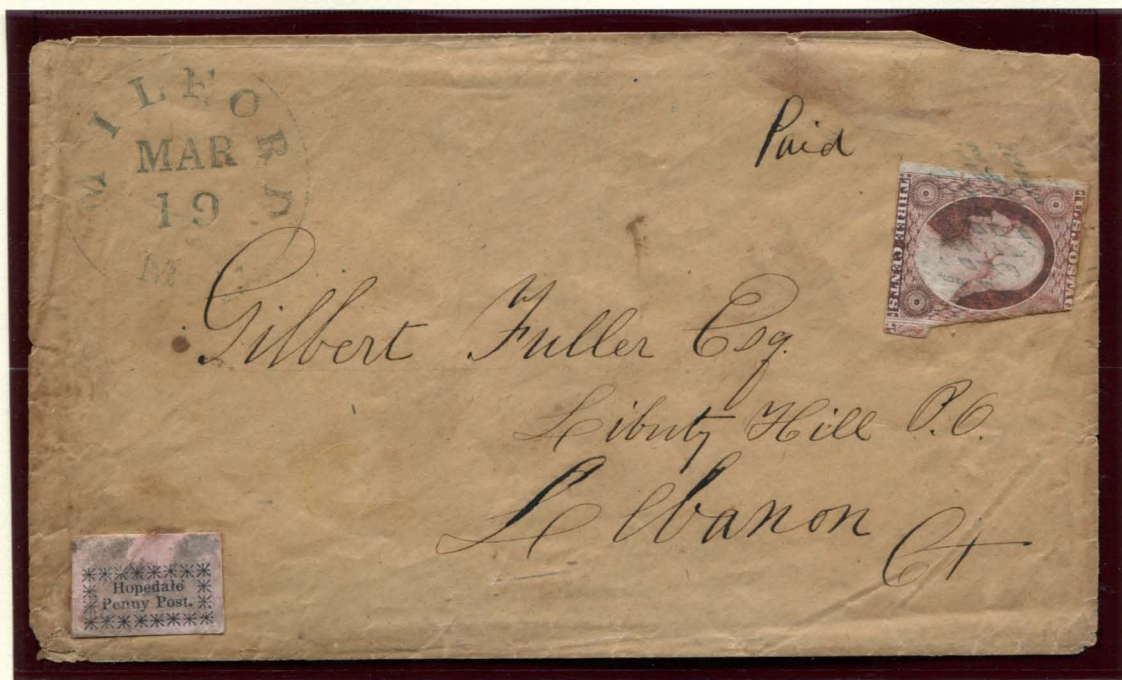 MILFORD
MAR
19
Paid
U.S. POSTAG
THREE CENTS
Gilbert Fuller Esq.
Liberty Hill P.O.
Lebanon
Ct
Hopedale
Penny Post.